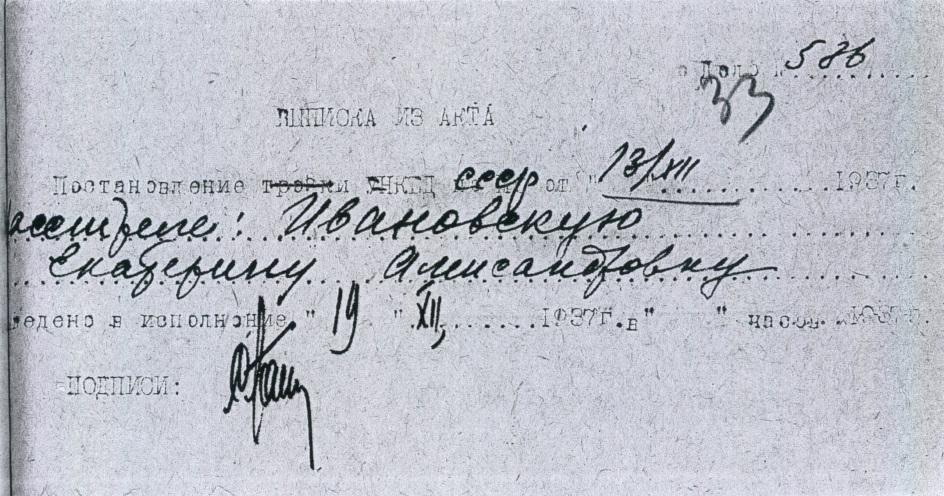 Дело № 586
33
ВЫПИСКА ИЗ АКТА
Постановление тройки УНКВД СССР от "13/XII 1937г.
расстреле: Ивановскую
Екатерину Александровну
ведено в исполнение " 19 " XII, 1937г. в " " часов. 1937г.
ПОДПИСИ: